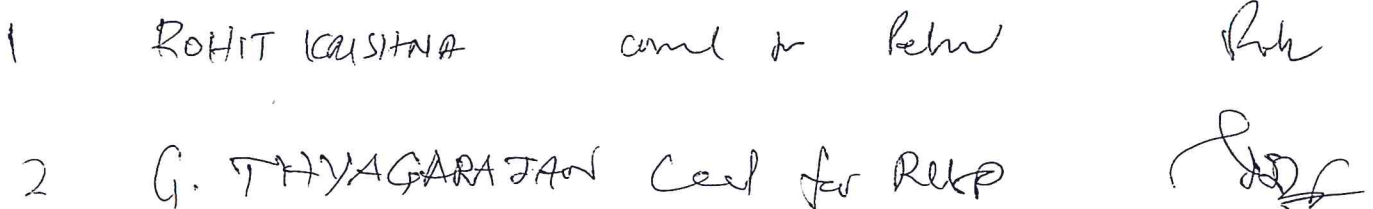 1 ROHIT KRISHNA counsel for Petnr
2 G. THYAGARAJAN Counsel for Resp